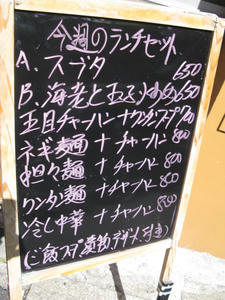 今週のランチセット
A、スブタ 650
B、海老と玉子いため 650
五目チャーハン+ワンタンスープ 700
ネギ麺 + チャーハン 800
担々麺 + チャーハン 800
ワンタン麺 + チャーハン 800
冷し中華 + チャーハン 850
(ご飯スープ漬物デザート付き)